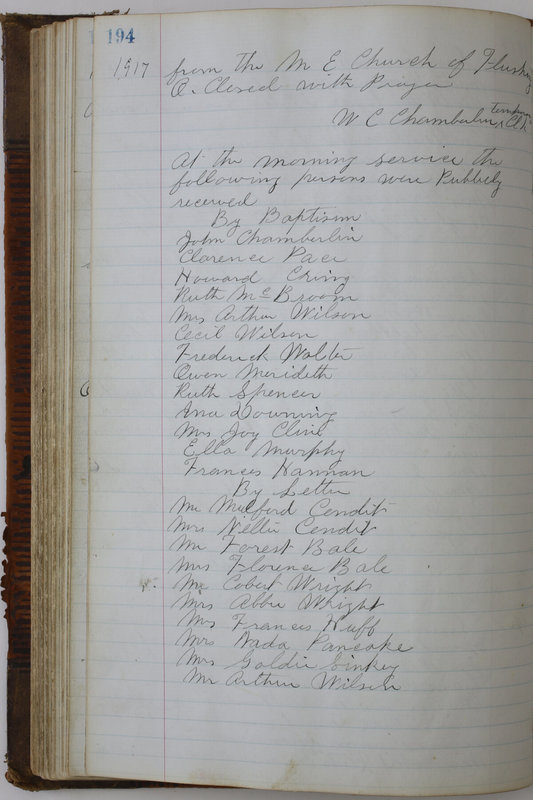 194
1917 from the M E Church of Flushing
O. Closed with Prayer
W C Chamberlin, Clk
At the morning service the
following persons were Publicly
received
By Baptism
John Chamberlin
Clarence Pace
Howard
Ruth McBroom
Mrs Arthur Wilson
Cecil Wilson
Frederick Walter
Owen Merideth
Ruth Spencer
Downing
Mrs Joy Cline
Ella Murphy
Frances Hannan
By Letter
Mr Milford Condit
Mrs Nellie Condit
Mr Forest Bale
Mrs Florence Bale
Mr Cobert Wright
Mrs Abbie Wright
Mrs Frances Huff
Mrs Pancake
Mrs Goldie
Mr Arthur Wilson